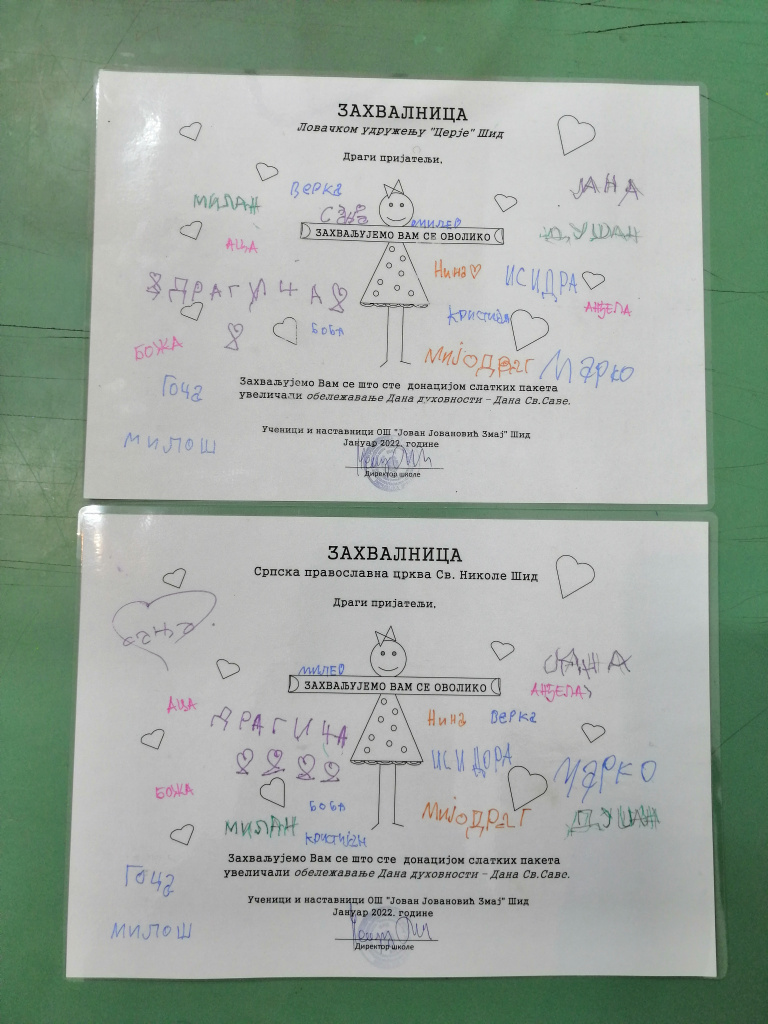 ЗАХВАЛНИЦА
Ловачком удружењу "Церје" Шид
Драги пријатељи,
Верка
ЈАНА
МИЛАН
МИЛЕО
ДУШАН
ЗАХВАЉУЈЕМО ВАМ СЕ ОВОЛИКО
АЦА
Нина
ИСИДРА
ДРАГИЦА
АНЂЕЛА
БОБА
Кристијан
БОЖА
МИЈОДРАГ
Марко
Гоца
Захваљујемо Вам се што сте донацијом слатких пакета
увеличали обележавање Дана духовности – Дана Св.Саве.
МИЛОШ
Ученици и наставници ОШ "Јован Јовановић Змај" Шид
Јануар 2022. године
Директор школе
ЗАХВАЛНИЦА
Српска православна црква Св. Николе Шид
Драги пријатељи,
МИЛЕО
ЗАХВАЉУЈЕМО ВАМ СЕ ОВОЛИКО
АНЂЕЛА
АЦА
ДРАГИЦА
Нина
Верка
ИСИДОРА
МАРКО
БОЖА
БОБА
МИЈОДРАГ
ДУШАН
МИЛАН
КРИСТИЈАН
Захваљујемо Вам се што сте донацијом слатких пакета
увеличали обележавање Дана духовности – Дана Св.Саве.
Гоца
Ученици и наставници ОШ "Јован Јовановић Змај" Шид
Јануар 2022. године
МИЛОШ
Директор школе